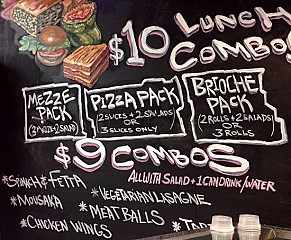 $10 LUNCH
COMBOS
MEZZE
PACK
PIZZA PACK
(2 SLICES + 2 SALADS)
OR
3 SLICES ONLY
BRIOCHE
PACK
(2 ROLLS + 2 SALADS)
OR
3 ROLLS
$9 COMBOS
ALL WITH SALAD + 1 CAN DRINK/WATER
*SPINACH & FETTA
*MOUSAKA
*CHICKEN WINGS
*VEGETARIAN LASAGNE
*MEAT BALLS